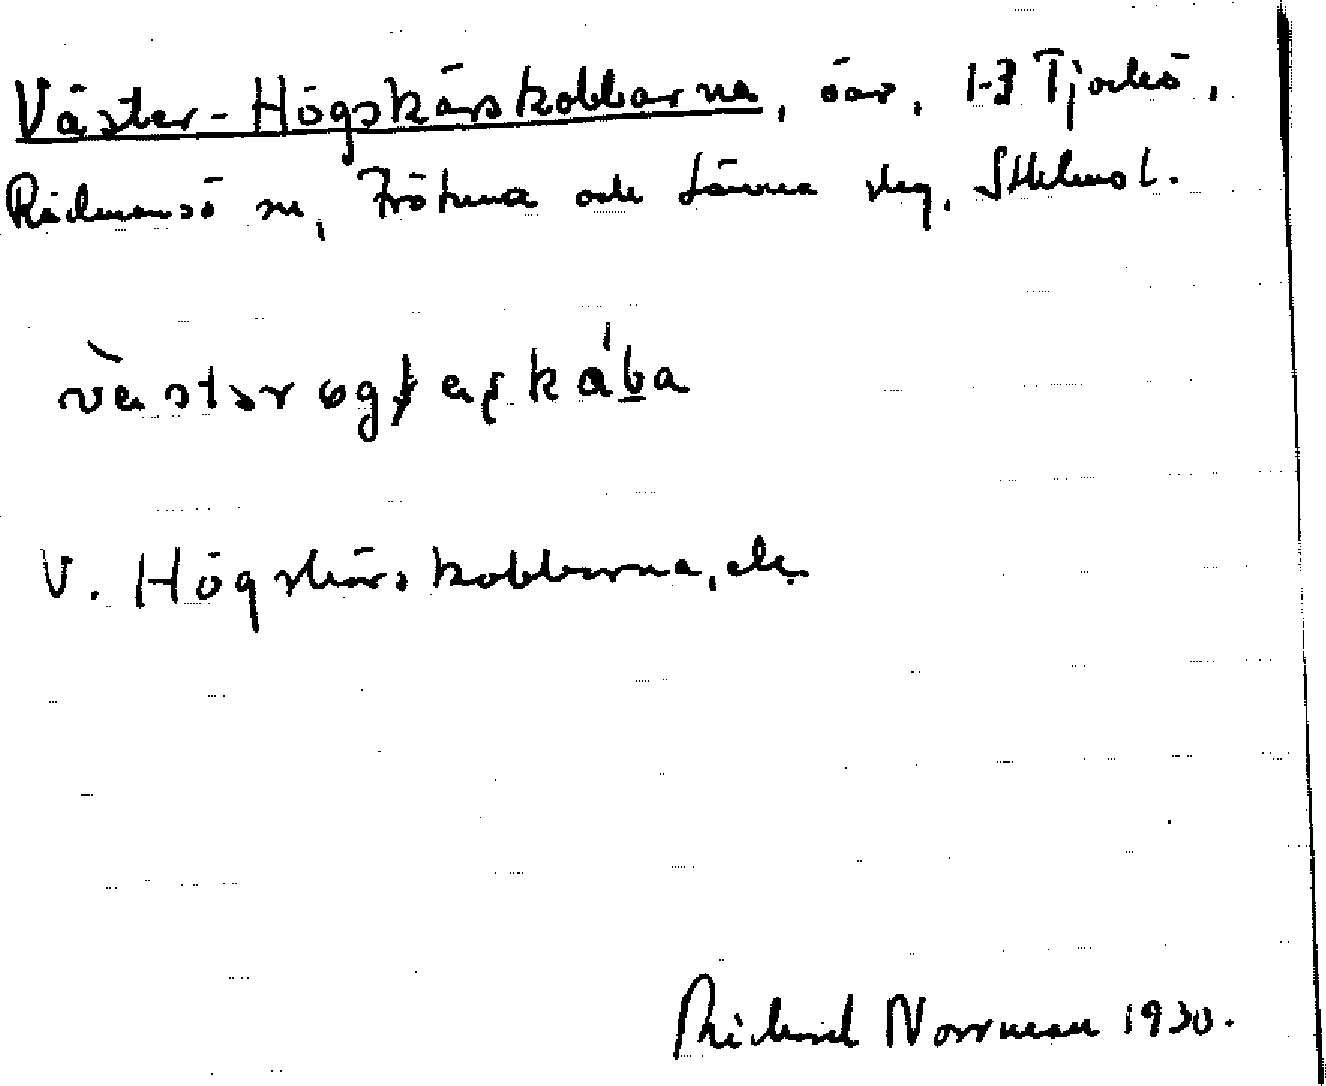 Väster-Högskärskobbarna, öar, 1-3 Tjockö,
Rådmansö sn, Frötuna och Länna skg, Sthlms l.
V. Högskärskobbarna, ek.
Richard Norrman 1930.